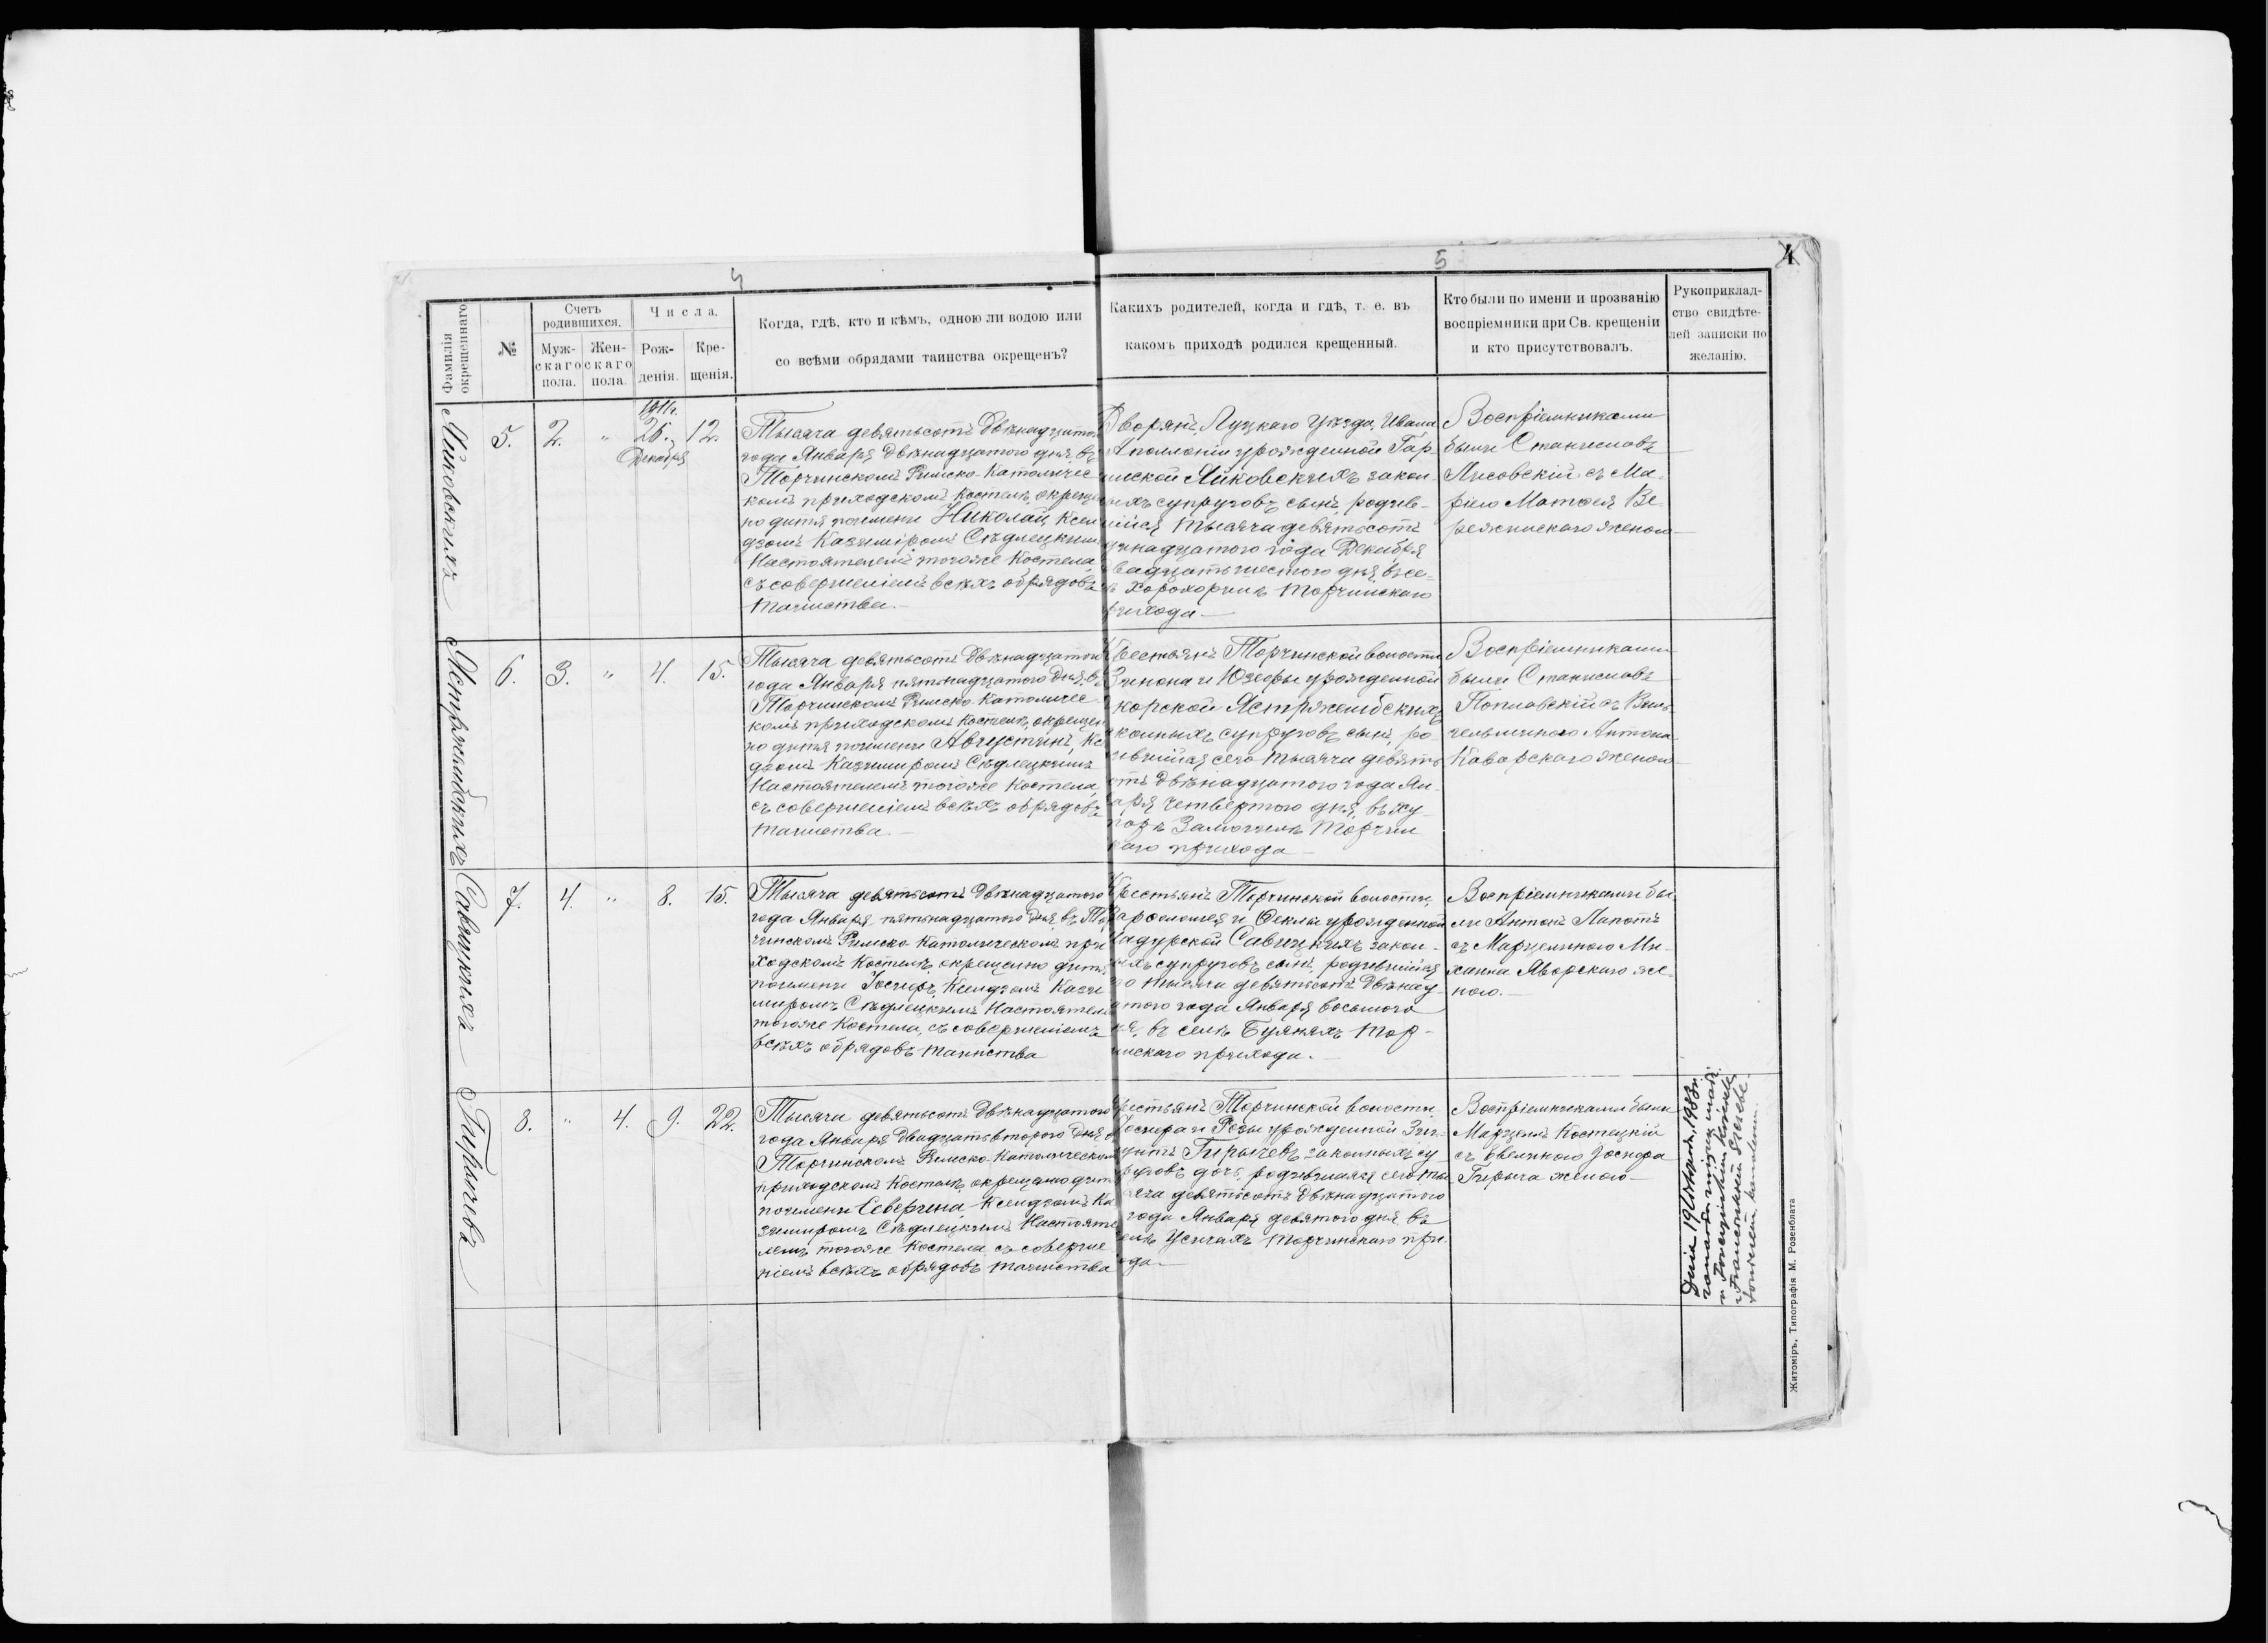 4
5
4
Фамилія окрещеннаго.
№
Счетъ родившихся.
Мужскаго пола.
Женскаго пола.
Числа.
Рожденія.
Крещенія.
Когда, гдѣ, кто и кѣмъ, одною ли водою или
со всѣми обрядами таинства окрещенъ?
Какихъ родителей, когда и гдѣ, т. е. въ
какомъ приходѣ родился крещенный.
Кто были по имени и прозванію
воспріемники при Св. крещеніи
и кто присутствовалъ.
Рукоприклад-
ство свидѣте-
лей записки по
желанію.
Яйковскихъ
5.
2.
"
1911г.
26.
Декабря
12.
Тысяча девятьсотъ двѣнадцатого
года Января двѣнадцатого дня, въ
Торчинскомъ Римско-Католичес
комъ приходскомъ Костелѣ, окрещe
но дитя поимени Николай, Ксен
дзомъ Казиміромъ Сѣдлецкимъ
Настоятелемъ тогоже Костела,
съ совершеніемъ всѣхъ обрядовъ
таинства.—
Дворянъ, Луцкаго Уѣзда, Ивана
Аполлоніи урожденной Гар-
инской Яйковскихъ закон-
ыхъ супруговъ сынъ, родив-
шійся тысяча девятьсотъ
надцатого года Декабря
вадцать шестого дня, въ се-
Хорохоринѣ Торчинскаго
рихода.—
Воспріемниками
были Станиславъ
Лисовскій съ Ма-
ріею Матѳея
женою—
Ястржембскихъ
6.
3.
"
4.
15.
Тысяча девятьсотъ двѣнадцатого
года Января пятнадцатого дня, въ
Торчинскомъ Римско-Католичес-
комъ приходскомъ Костелѣ, окрещен
но дитя поимени Августинъ, Ксе
дзомъ Казимиромъ Сѣдлецкимъ
Настоятелемъ тогоже Костела,
съ совершеніемъ всѣхъ обрядовъ
таинства.—
Крестьянъ Торчинской волости
Зинона и Юзефы урожденной
Ястржембскихъ
конныхъ супруговъ сынъ, ро-
ившійся сего тысяча девять
отъ двѣнадцатого года Ян-
аря четвертого дня, въ ху-
торѣ Торчин
каго прихода—
Воспріемниками
были Станиславъ
Поплавскій съ
Антона
женою—
Савицкихъ
7.
4.
"
8.
15.
Тысяча девятьсотъ двѣнадцатого
года Января пятнадцатого дня, въ Тор
чинскомъ Римско-Католическомъ при
ходскомъ Костелѣ, окрещено дитя
поимени Іосифъ, Ксендзомъ Кази
миромъ Сѣдлецкимъ Настоятеле
тогоже Костела, съ совершеніемъ
всѣхъ обрядовъ таинства
Крестьянъ Торчинской волости,
Варѳоломея и Ѳеклы урожденной
Савицкихъ закон-
ыхъ супруговъ сынъ, родившійся
го тысяча девятьсотъ двѣнад-
атого года Января восьмого
ня, въ селѣ Буянахъ Тор-
инскаго прихода.—
Воспріемниками бы-
ли Антонъ Лапотъ
съ Марцелиною Ми-
хаила Яворскаго же-
ною.—
Гиричевъ
8.
"
4.
9.
22.
Тысяча девятьсотъ двѣнадцатого
года Января двадцать второго дня, въ
Торчинскомъ Римско-Католическом
приходскомъ Костелѣ, окрещено дит
поимени Северина Ксендзомъ Ка
зимиромъ Сѣдлецкимъ Настояте
лемъ тогоже Костела, съ соверше
ніемъ всѣхъ обрядовъ таинства
рестьянъ Торчинской волости,
Іосифа и Розы урожденной
Гиричевъ законныхъ су
руговъ дочь, родившаяся сего ты
яча девятьсотъ двѣнадцатого
года Января девятого дня, въ
елѣ Усичахъ Торчинскаго при-
ода—
Воспріемниками были
Марцелъ Костецкій
съ Эвелиною Іосифа
Гирича женою—
Житоміръ, Типографія М. Розенблата